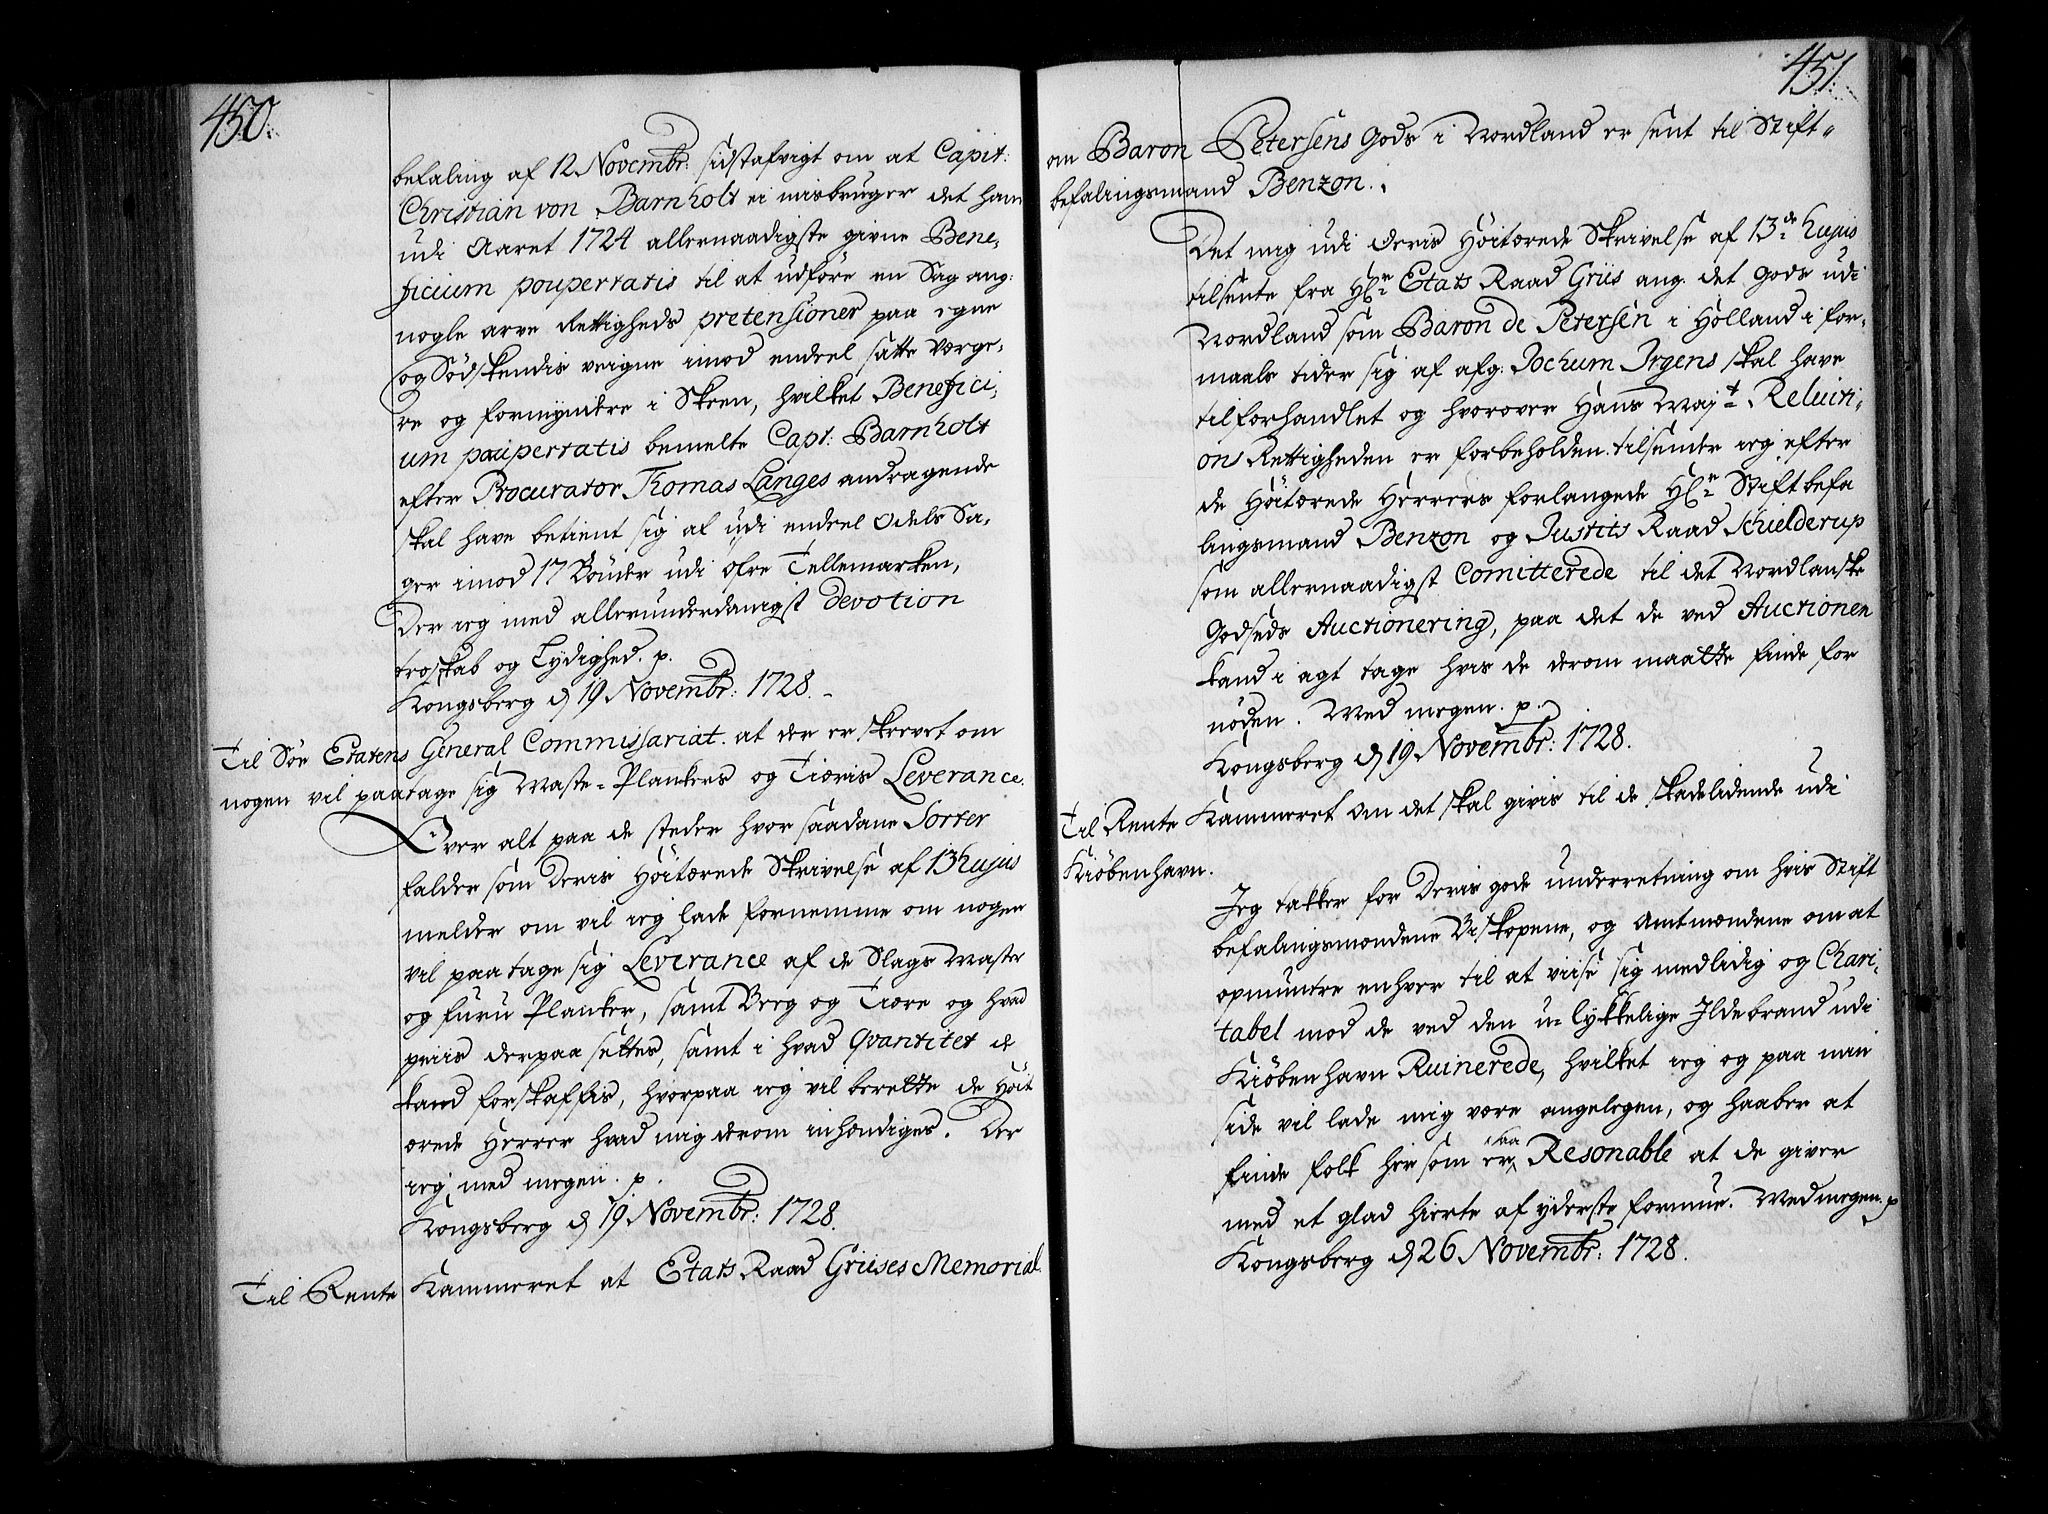 450.
befaling af 12 Novembr: sidstafvigt om at Capit:
Christian von Barnholt ei misbruger det ham
udi Aaret 1724 allernaadigste givne Bene,
ficium poupertatis til at udföre en Sag ang:
nogle arve Rettigheds pretensioner paa egne
og Södskendis veigne imod endeel satte Verge,
re og formyndere i Skeen, hvilket Benefici,
um paupertatis bemelte Capt: Barnholt
efter Procurator Thomas Langes andragende
skal have betient sig af udi endeel Odels Sa,
ger imod 17 Bönder udi Öfre Tellemarken,
Der ieg med allerunderdanigst devotion
troskab og Lydighed. p.
Kongsberg d 19 Novembr: 1728.
Til Söe Etatens General Commissariat. at der er skrevet om
nogen vil paatage sig Maste-Plankers og Tieris Leverance.
Over alt paa de steder hvor saadane Sorter
falder som Deris Höitærede Skrivelse af 13 hujus
melder om vil ieg lade fornemme om nogen
vil paatage sig Leverance af de Slags Master
og furu Planker, samt Beeg og Tiære og hvad
priis derpaa settes, samt i hvad Qvantitet de
kand forskaffis, hvorpaa ieg vil berette de Höit
ærede Herrer hvad mig derom inhendiges. Der
ieg med megen. p.
Kongsberg d 19 Novembr: 1728.
Til Rente Kammeret at Etats Raad Griises Memorial
451.
om Baron Petersens Gods i Nordland er sent til Stift-
befalingsmand Benzon.
Det mig udi Deris Höitærede Skrivelse af 13de hujus
tilsente fra Hr Etats Raad Griis ang. det Gods udi
Nordland som Baron de Petersen i Holland i for,
maals tider sig af afg: Jochum Irgens skal have
tilforhandlet og hvorover Hans Majt Reluiti,
ons Rettigheden er forbeholden. tilsender ieg efter
de Höitærede Herrers forlangede Hr Stiftbefa
lingsmand Benzon og Justits Raad Schielderup
som allernaadigst Comitterede til det Nordlanske
Godseds Auctionering, paa det de ved Auctionen
kand i agt tage hvis de derom maatte finde for
nöden. Med megen. p.
Kongsberg d 19 Novembr: 1728.
Til Rente Kammeret om det skal givis til de skadelidende udi
Kiöbenhavn.
Jeg takker for Deris gode underretning om hvis Stift
befalingsmændene Biskopene, og Amtmændene om at
opmuntre enhver til at viise sig medlidig og Chari,
tabel mod de ved den u-lykkelige Ildebrand udi
Kiöbenhavn Ruinerede, hvilket ieg og paa min
side vil lade mig være angelegen, og haaber at
finde folk her som er saa Resonable at de giver
med et glad hierte af yderste formue. Med megen. p
Kongsberg d 26 Novembr: 1728.